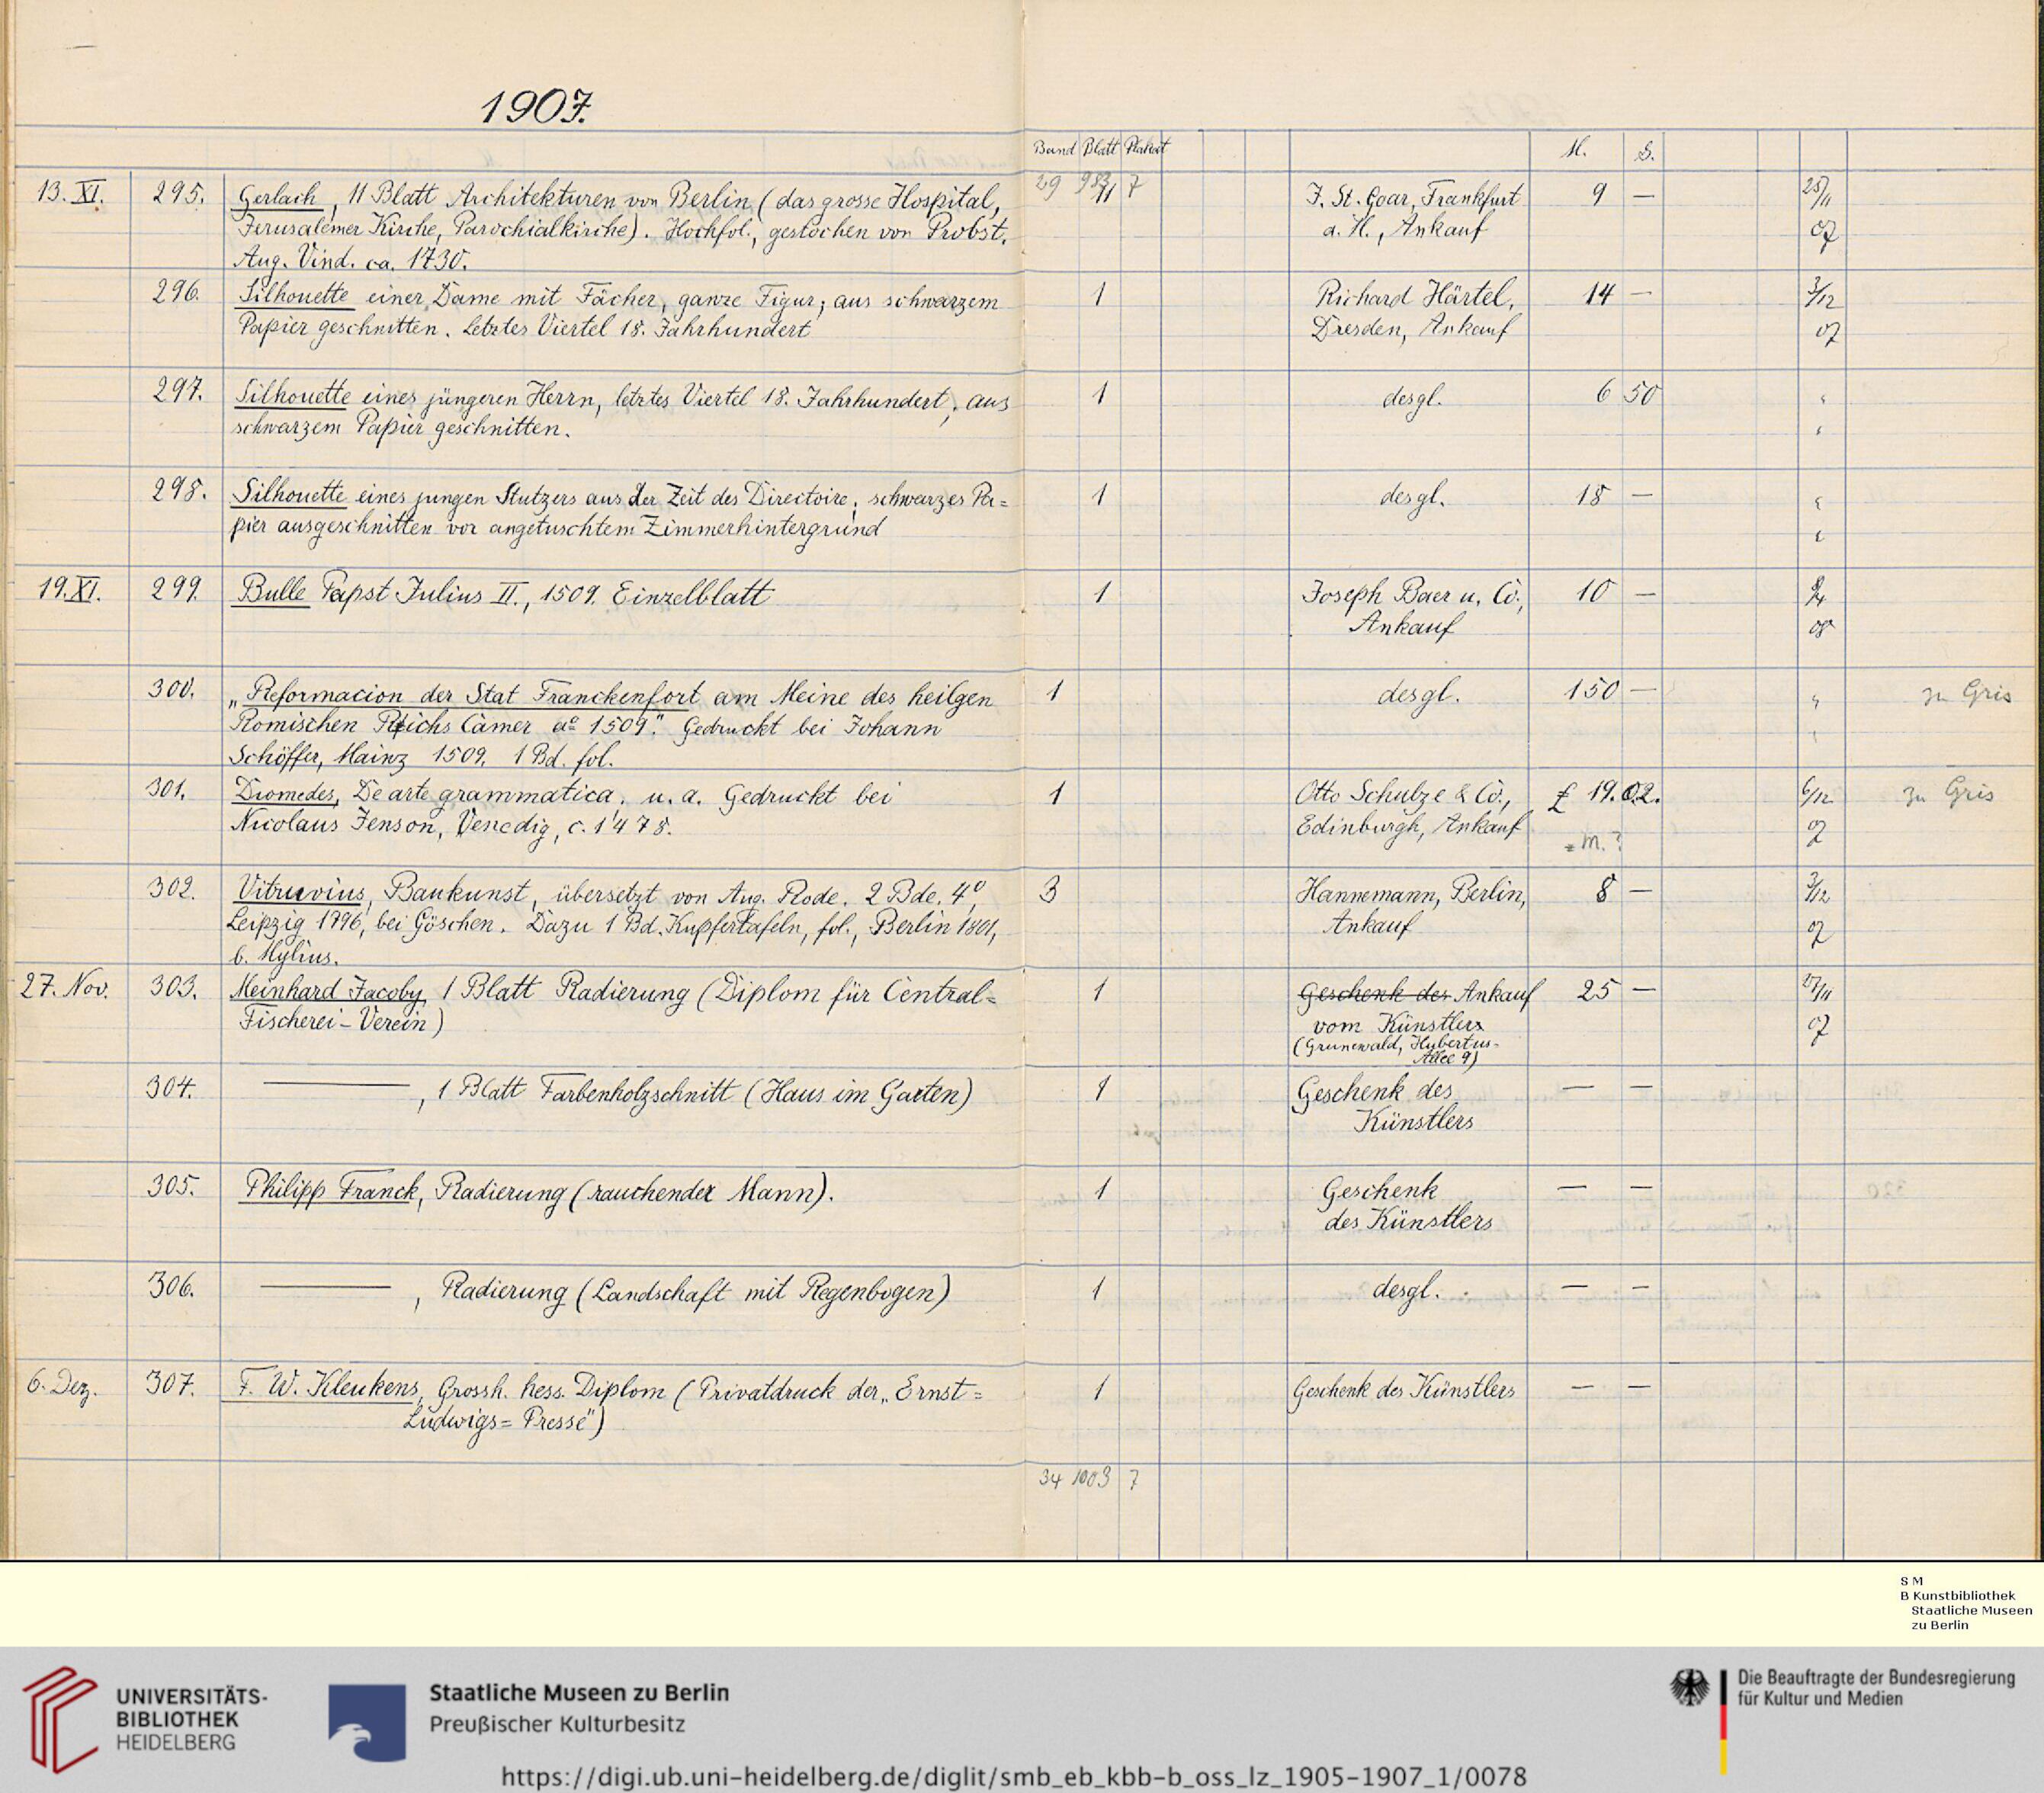 1907.
Band Blatt Plakat M. S.
29 983 7
13. XI. 295. Gerlach, 11 Blatt Architekturen von Berlin (das grosse Hospital, 11 J. St. Goar, Frankfurt 9 — 25/11
Jerusalemer Kirche, Parochialkirche). Hochfol., gestochen von Probst, a. M., Ankauf 07
Aug. Vind. ca. 1730.
296. Silhouette einer Dame mit Fächer, ganze Figur; aus schwarzem 1 Richard Härtel, 14 — 3/12
Papier geschnitten. Letztes Viertel 18. Jahrhundert Dresden, Ankauf 07
297. Silhouette eines jüngeren Herrn, letztes Viertel 18. Jahrhundert, aus 1 desgl. 6 50 "
schwarzem Papier geschnitten. "
298. Silhouette eines jungen Stutzers aus der Zeit des Directoire; schwarzes Pa= 1 desgl. 18 — "
pier ausgeschnitten vor angetuschtem Zimmerhintergrund "
19. XI. 299. Bulle Papst Julius II., 1509. Einzelblatt 1 Joseph Baer u. Co., 10 —
Ankauf 08
300. „Reformacion der Stat Franckenfort am Meine des heilgen 1 desgl. 150 — " zu Gris
Romischen Reichs Camer ao 1509." Gedruckt bei Johann "
Schöffer, Mainz 1509. 1 Bd. fol.
301. Diomedes, De arte grammatica. u. a. Gedruckt bei 1 Otto Schulze & Co., £ 19.0.2. 6/12 zu Gris
Nicolaus Jenson, Venedig, c. 1478. Edinburgh, Ankauf 07
= M. ?
302. Vitruvius, Baukunst, übersetzt von Aug. Rode. 2 Bde. 4o, 3 Hannemann, Berlin, 8 — 3/12
Leipzig 1796, bei Göschen. Dazu 1 Bd. Kupfertafeln, fol., Berlin 1801, Ankauf 07
b. Mylius.
27. Nov. 303. Meinhard Jacoby, 1 Blatt Radierung (Diplom für Central= 1 Geschenk des Ankauf 25 — 27/11
Fischerei-Verein) vom Künstler 07
(Grunewald, Hubertus-
Allee 9)
304. ———, 1 Blatt Farbenholzschnitt (Haus im Garten) 1 Geschenk des — —
Künstlers
305. Philipp Franck, Radierung (rauchender Mann). 1 Geschenk — —
des Künstlers
306. ———, Radierung (Landschaft mit Regenbogen) 1 desgl. — —
6. Dez. 307. F. W. Kleukens, Grossh. hess. Diplom (Privatdruck der „Ernst= 1 Geschenk des Künstlers — —
Ludwigs=Presse")
34 1003 7
S M
B Kunstbibliothek
Staatliche Museen
zu Berlin
UNIVERSITÄTS-
BIBLIOTHEK
HEIDELBERG
Staatliche Museen zu Berlin
Preußischer Kulturbesitz
Die Beauftragte der Bundesregierung
für Kultur und Medien
https://digi.ub.uni-heidelberg.de/diglit/smb_eb_kbb-b_oss_lz_1905-1907_1/0078